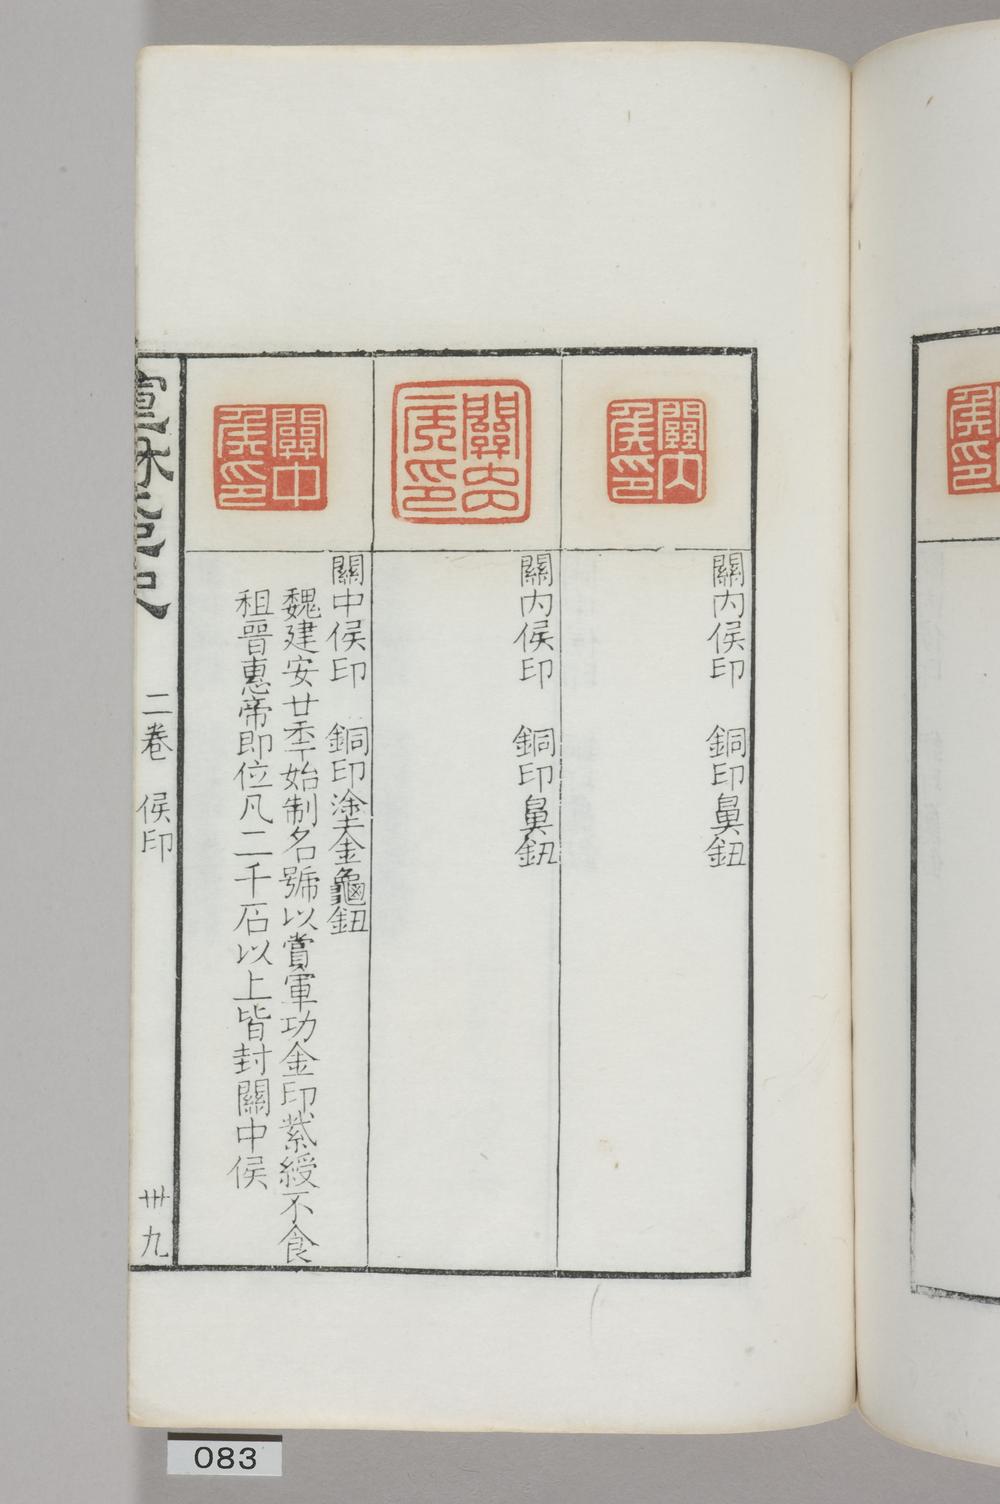 關內侯印
關內侯印　銅印鼻鈕
關內侯印
關內侯印　銅印鼻鈕
關中侯印
關中侯印　銅印塗金龜鈕
魏建安廿年始制名號以賞軍功金印紫綬不食
租晉惠帝即位凡二千石以上皆封關中侯
二卷　侯印
卌九
083